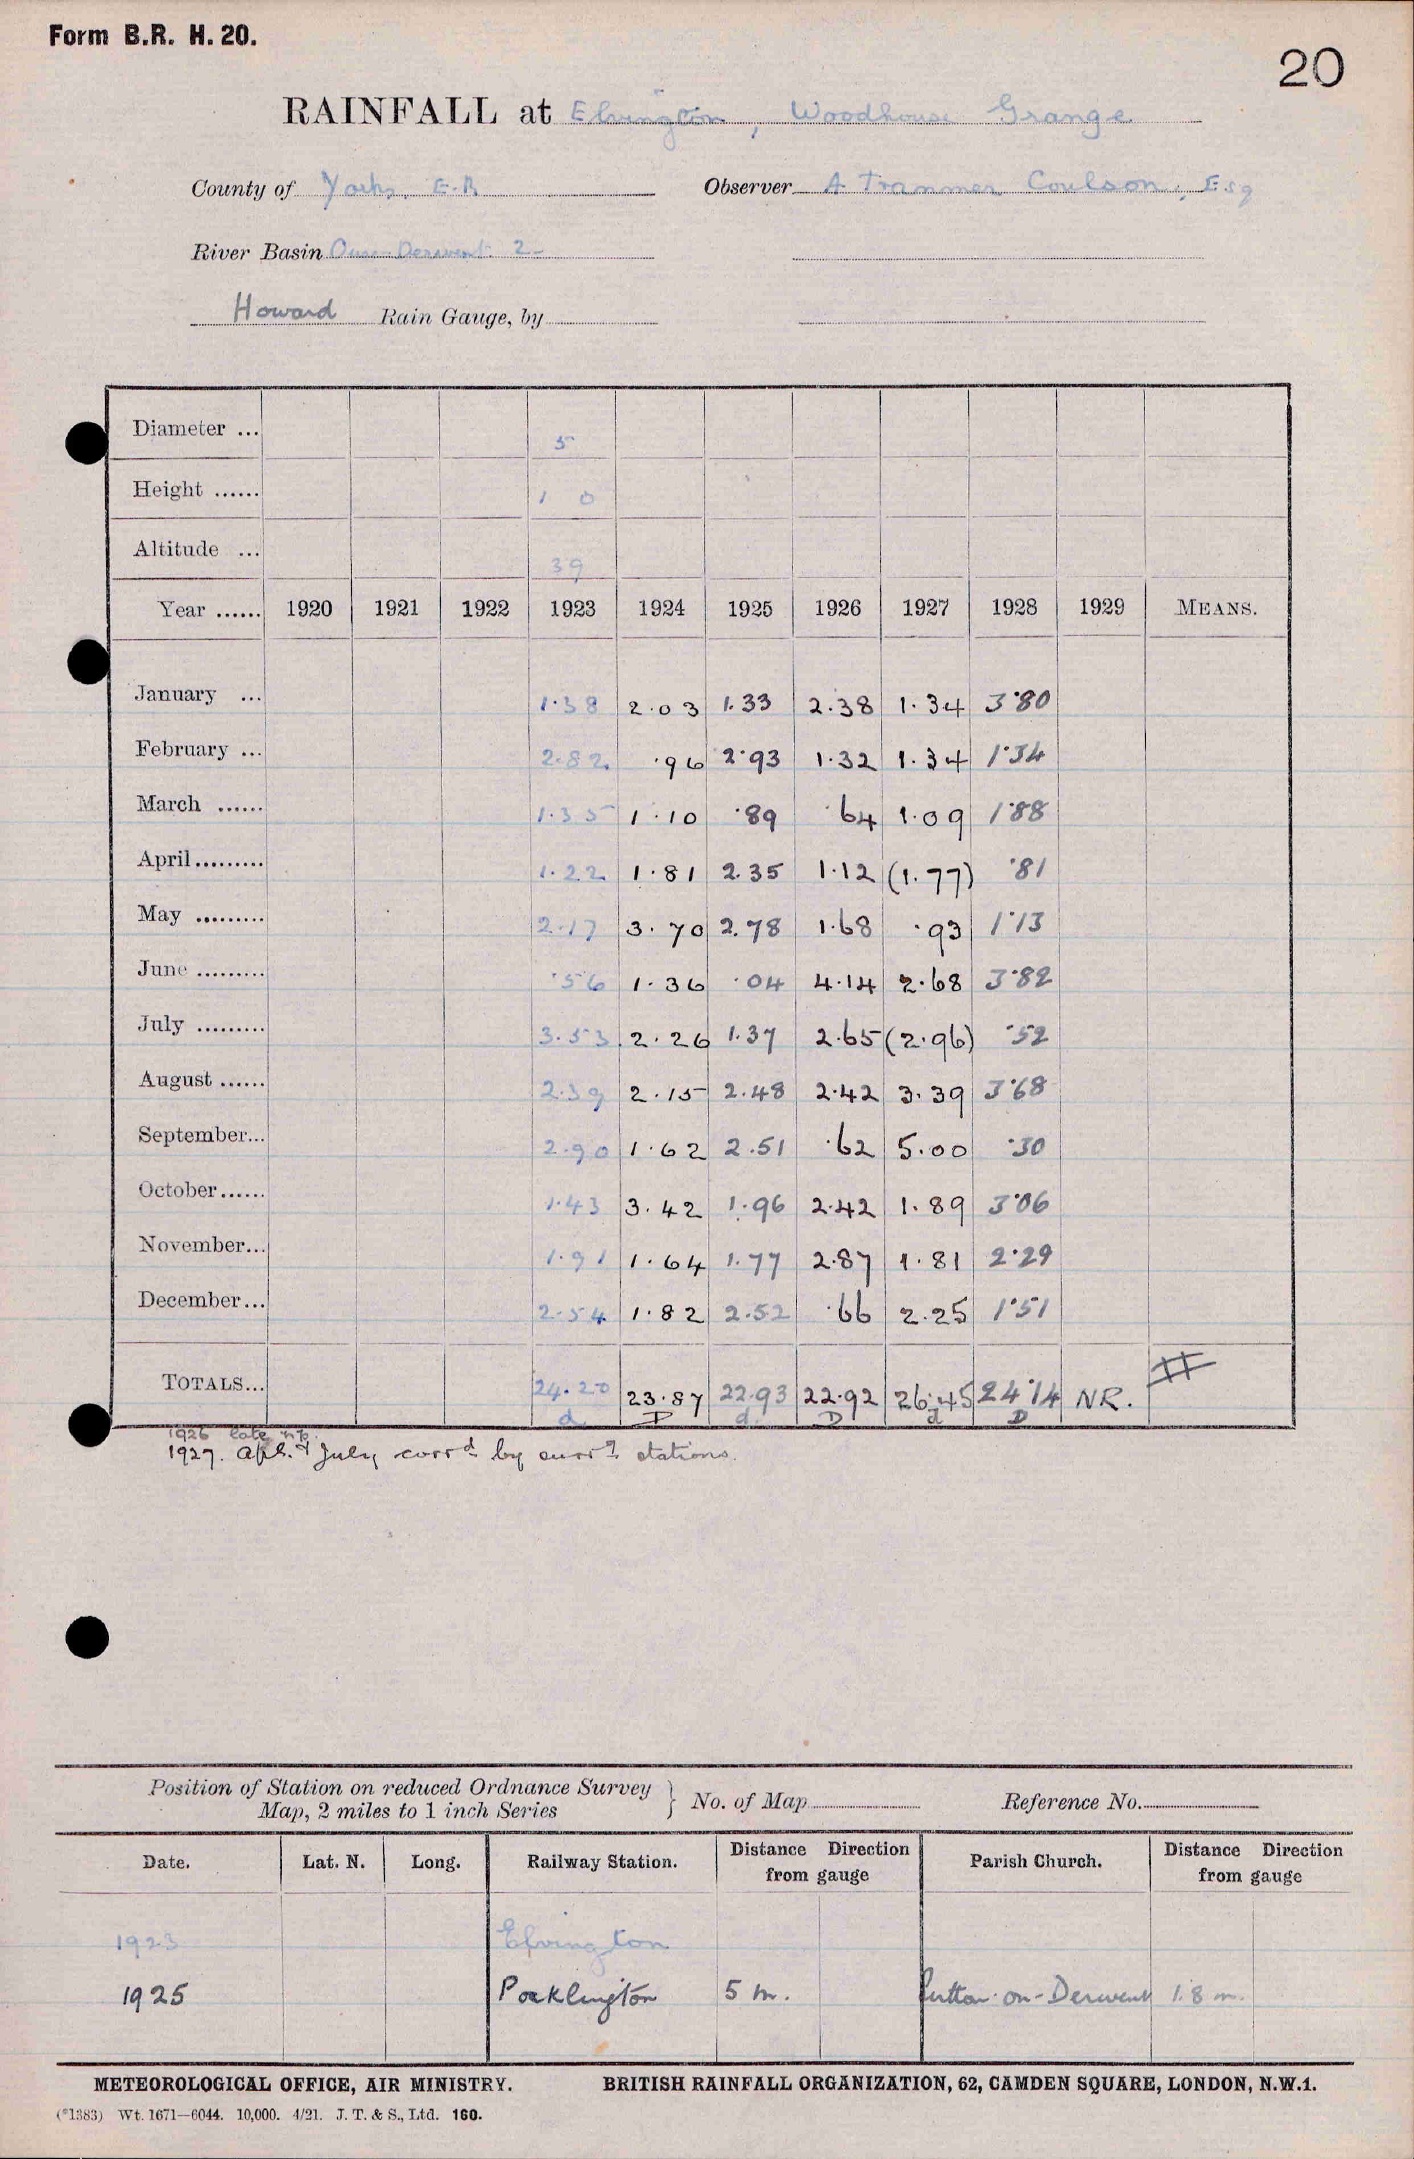 Form B.R. H. 20.
20
RAINFALL at Elvington, Woodhouse Grange
County of Yorks, E.R Observer A Tranmer Coulson, Esq
River Basin Ouse-Derwent 2
Howard Rain Gauge, by
Diameter ... 5
Height ...... 1 0
Altitude ... 39
Year ...... 1920 1921 1922 1923 1924 1925 1926 1927 1928 1929 MEANS.
January ... 1.38 2.03 1.33 2.38 1.34 3.80
February ... 2.82 .96 2.93 1.32 1.34 1.34
March ...... 1.35 1.10 .89 .64 1.09 1.88
April......... 1.22 1.81 2.35 1.12 (1.77) .81
May ......... 2.17 3.70 2.78 1.68 .93 1.13
June ......... .56 1.36 .04 4.14 2.68 3.82
July ......... 3.53 2.26 1.37 2.65 (2.96) .52
August ...... 2.39 2.15 2.48 2.42 3.39 3.68
September... 2.90 1.62 2.51 .62 5.00 .30
October...... 1.43 3.42 1.96 2.42 1.89 3.06
November... 1.91 1.64 1.77 2.87 1.81 2.29
December... 2.54 1.82 2.52 .66 2.25 1.51
TOTALS... 24.20 23.87 22.93 22.92 26.45 24.14 NR.
d D d. D d D
1926 late
1927. Apl. & July corrd by surrg stations.
Position of Station on reduced Ordnance Survey
Map, 2 miles to 1 inch Series } No. of Map Reference No.
Date. Lat. N. Long. Railway Station. Distance Direction from gauge Parish Church. Distance Direction from gauge
1923 Elvington
1925 Pocklington 5 m. Sutton-on-Derwent 1.8 m.
METEOROLOGICAL OFFICE, AIR MINISTRY. BRITISH RAINFALL ORGANIZATION, 62, CAMDEN SQUARE, LONDON, N.W.1.
(*1383) Wt. 1671—6044. 10,000. 4/21. J. T. & S., Ltd. 160.